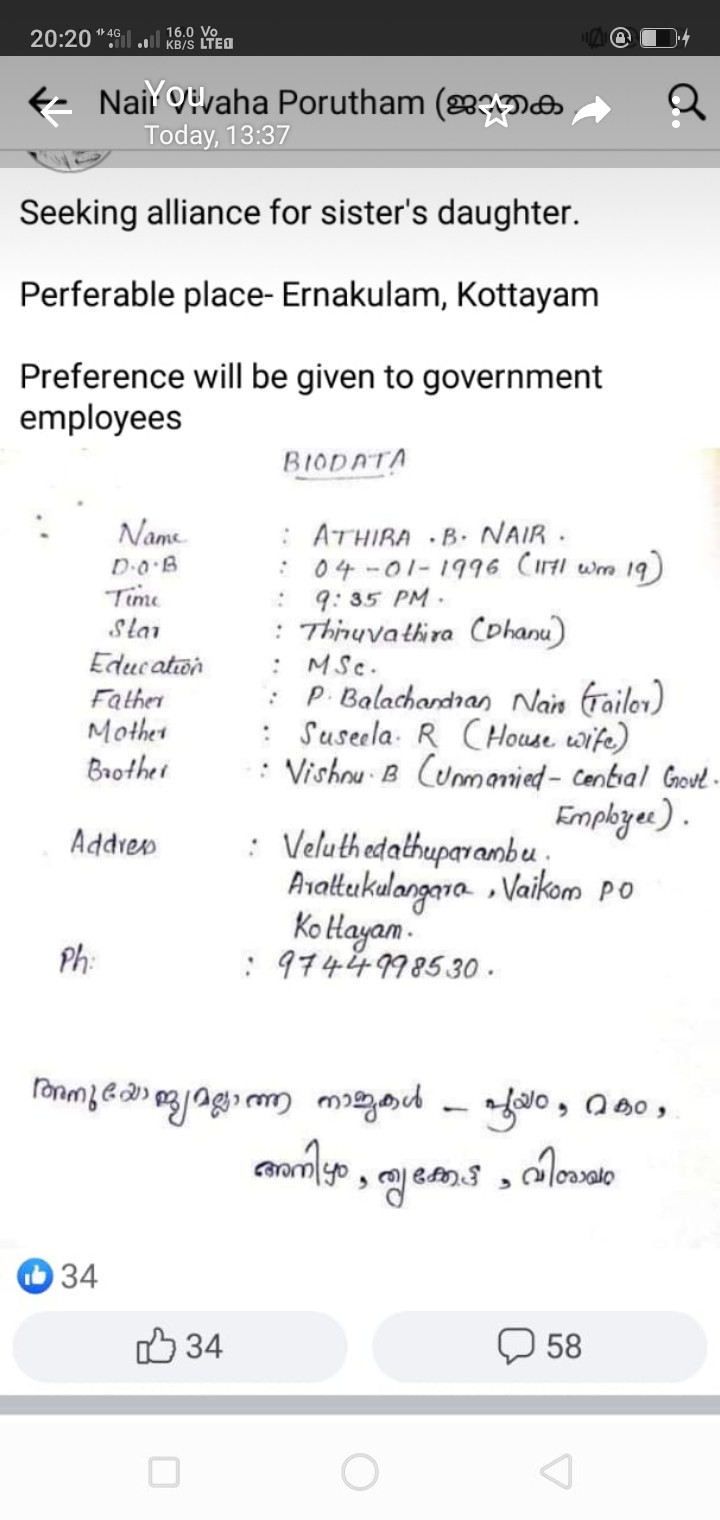 20:20 4G 16.0 KB/S Vo LTE
Nair Vivaha Porutham (ജാതക
You
Today, 13:37
Seeking alliance for sister's daughter.
Perferable place- Ernakulam, Kottayam
Preference will be given to government
employees
BIODATA
Name : ATHIRA .B. NAIR .
D.O.B : 04-01-1996 (1171 ധനു 19)
Time : 9:35 PM .
Star : Thiruvathira (Dhanu)
Education : MSc.
Father : P. Balachandran Nair (Tailor)
Mother : Suseela. R (House wife)
Brother : Vishnu. B (Unmarried - central Govt.
Employee).
Address : Veluthedathuparambu.
Arattukulangara , Vaikom PO
Kottayam.
Ph: : 9744998530.
അനുയോജ്യമല്ലാത്ത നാളുകൾ - പൂയം, മകം,
അനിഴം, തൃക്കേട്ട, വിശാഖം
34
34
58